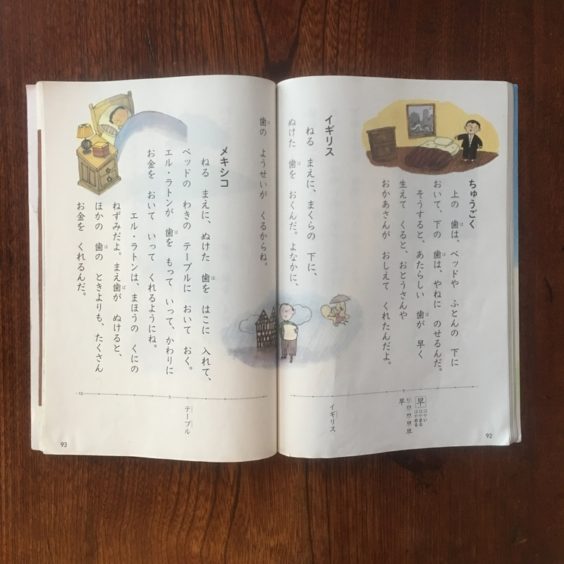 ちゅうごく
上の 歯は、ベッドや ふとんの 下に
おいて、下の 歯は、やねに のせるんだ。
そうすると、あたらしい 歯が 早く
生えて くると、おとうさんや
おかあさんが おしえて くれたんだよ。
イギリス
ねる まえに、まくらの 下に、
ぬけた 歯を おくんだ。よなかに、
早
はやい
はやまる
はやめる
早
イギリス
92
歯の ようせいが くるからね。
メキシコ
ねる まえに、ぬけた 歯を はこに 入れて、
ベッドの わきの テーブルに おいて おく。
エル・ラトンが 歯を もって いって、かわりに
お金を おいて いって くれるようにね。
エル・ラトンは、まほうの くにの
ねずみだよ。まえ歯が ぬけると、
ほかの 歯の ときよりも、たくさん
お金を くれるんだ。
テーブル
93